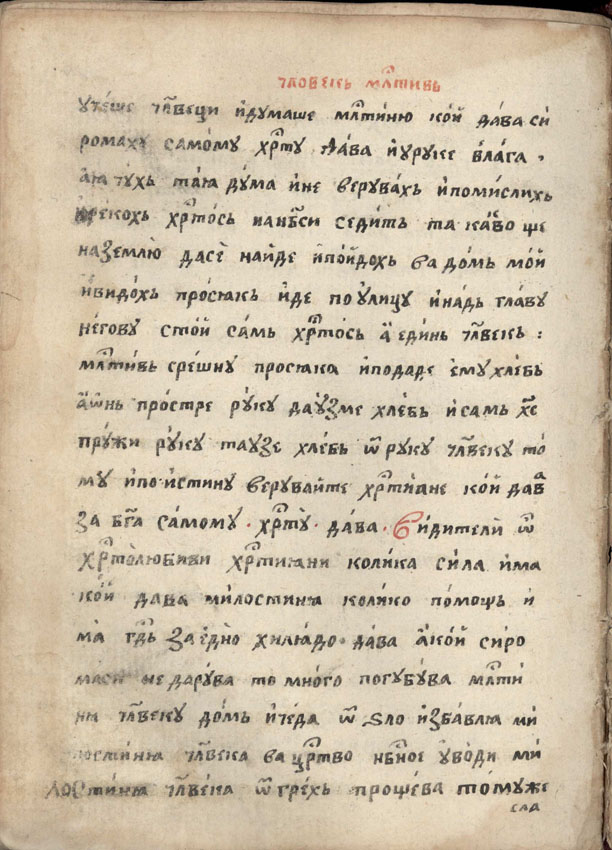 члове́кь млⷭ҇тивь
уте́ше чл҃веци и҆думаше млⷭ҇тиню ко́й да́ва си
ромаху само́му хрⷭ҇ту да́ва и҆уруке вла́га ·
а҆ꙗ чухь таꙗ ду́ма и҆не верува́хь и҆поми́слихь
и҆реко́хь хрⷭ҇то́сь на нб҃си седи́ть та ка́во ще
на́землю̀ дасѐ найде и҆по́йдохь ва до́мь мо́й
и҆ви́дохь про́сꙗкь и҆́де по у҆́лицу и҆на́дь гла́ву
не́гову сто́й са́мь хрⷭ҇то́сь а҆ еди́нь чл҃ве́кь :
млⷭ҇ти́вь сре́шну про́сꙗка и҆пода́ре є҆му хле́бь
а҆ѡ҆́нь про́стре ру́ку дау́ꙁме хле́бь и҆ са́мь хс҃е
пру́жи ру́ку тау́зе хле́бь ѿ руку чл҃ве́ку то́
му и҆поистину верува́йте хрⷭ҇тиꙗне кой дав
за бг҃а са́мому · хрⷭ҇ту̀ · да́ва · Ви́дители ѿ
хрⷭ҇то̀любиви хрⷭ҇тиꙗни коли́ка си́ла и҆́ма
ко́й да́ва ми́лостинꙗ коли́ко по́мощь и҆
ма̀ гдⷭ҇ь за е҆дно хилꙗдо да́ва а҆ко́й си́ро
маси не дару́ва то мно́го погубу́ва млⷭ҇ти
ни чл҃ве́ку до́мь и҆че́да ѿ ѕло и҆зба́влꙗ ми
лости́нꙗ чл҃ве́ка ва црⷭ҇тво нб҃ное уво́ди ми
лости́нꙗ чл҃ве́ка ѿ гре́хь проще́ва то́муже
сла